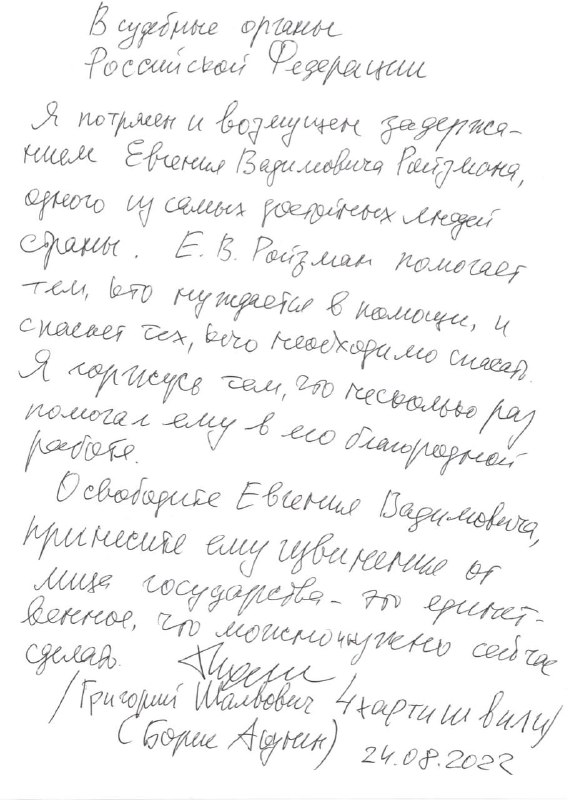 В судебные органы
Российской Федерации
Я потрясен и возмущен задержа-
нием Евгения Вадимовича Ройзмана,
одного из самых достойных людей
страны. Е. В. Ройзман помогает
тем, кто нуждается в помощи, и
спасает тех, кого необходимо спасать.
Я горжусь тем, что несколько раз
помогал ему в его благородной
работе.
Освободите Евгения Вадимовича,
принесите ему извинение от
лица государства – это единст-
венное, что можно и нужно сейчас
сделать.
/Григорий Шалвович Чхартишвили/
(Борис Акунин) 24.08.2022